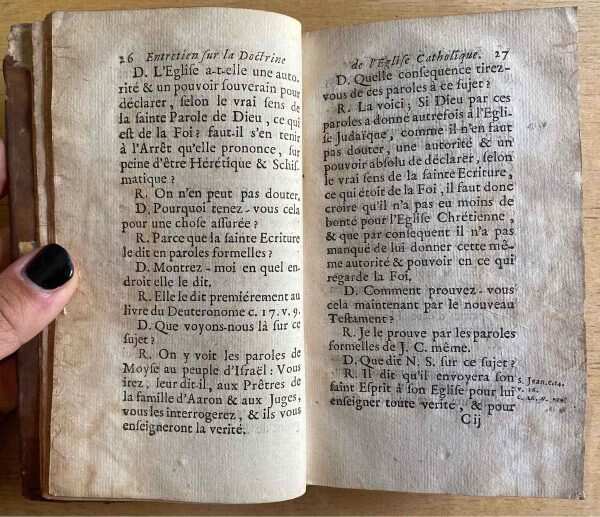 26 Entretien sur la Doctrine
D. L'Eglise a-t-elle une auto-
rité & un pouvoir souverain pour
déclarer, selon le vrai sens de
la sainte Parole de Dieu, ce qui
est de la Foi? faut-il s'en tenir
à l'Arrêt qu'elle prononce, sur
peine d'être Hérétique & Schis-
matique?
R. On n'en peut pas douter.
D. Pourquoi tenez-vous cela
pour une chose assurée?
R. Parce que la sainte Ecriture
le dit en paroles formelles?
D. Montrez-moi en quel en-
droit elle le dit.
R. Elle le dit premiérement au
livre du Deuteronome c. 17. v. 9.
D. Que voyons-nous là sur ce
sujet?
R. On y voit les paroles de
Moyse au peuple d'Israël: Vous
irez, leur dit-il, aux Prêtres de
la famille d'Aaron & aux Juges,
vous les interrogerez, & ils vous
enseigneront la verité.
de l'Eglise Catholique. 27
D. Quelle consequence tirez-
vous de ces paroles à ce sujet?
R. La voici; Si Dieu par ces
paroles a donné autrefois à l'Egli-
se Judaïque, comme il n'en faut
pas douter, une autorité & un
pouvoir absolu de déclarer, selon
le vrai sens de la sainte Ecriture,
ce qui étoit de la Foi, il faut donc
croire qu'il n'a pas eu moins de
bonté pour l'Eglise Chrétienne,
& que par consequent il n'a pas
manqué de lui donner cette mê-
me autorité & pouvoir en ce qui
regarde la Foi.
D. Comment prouvez-vous
cela maintenant par le nouveau
Testament?
R. Je le prouve par les paroles
formelles de J. C. même.
D. Que dit N. S. sur ce sujet?
R. Il dit qu'il envoyera son
saint Esprit à son Eglise pour lui
enseigner toute verité, & pour
S. Jean.
Cij